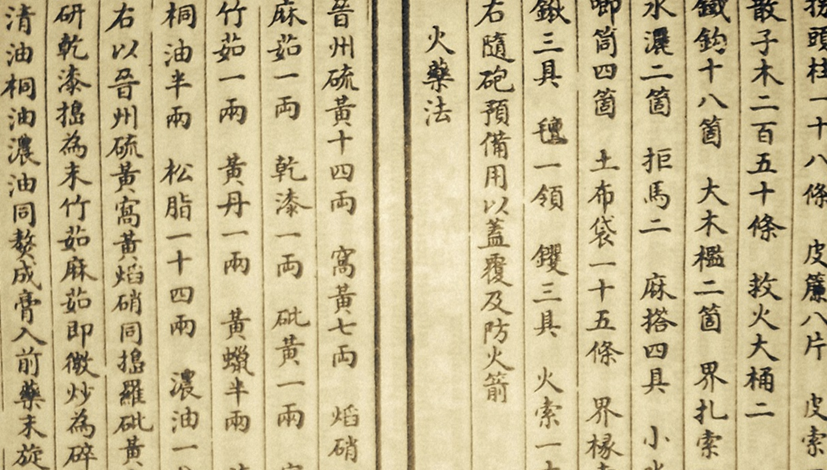 頭柱一十八條 皮簾八片 皮索
散子木二百五十條 救火大桶二
鐵鈎十八箇 大木檻二箇 界扎索
水二箇 拒馬二 麻搭四具 小水
唧筒四箇 土布袋一十五條 界椽
鍬三具 氊一領 钁三具 火索一十
右隨砲預備用以蓋覆及防火箭
火藥法
晉州硫黃十四両 窩黃七両 焰硝
麻茹一両 乾漆一両 砒黃一兩
竹茹一兩 黃丹一兩 黃蠟半兩
桐油半兩 松脂一十四兩 濃油一
右以晉州硫黃窩黃焰硝同搗羅砒黃
研乾漆搗為末竹茹麻茹即微炒為碎
清油桐油濃油同熬成膏入前藥末旋